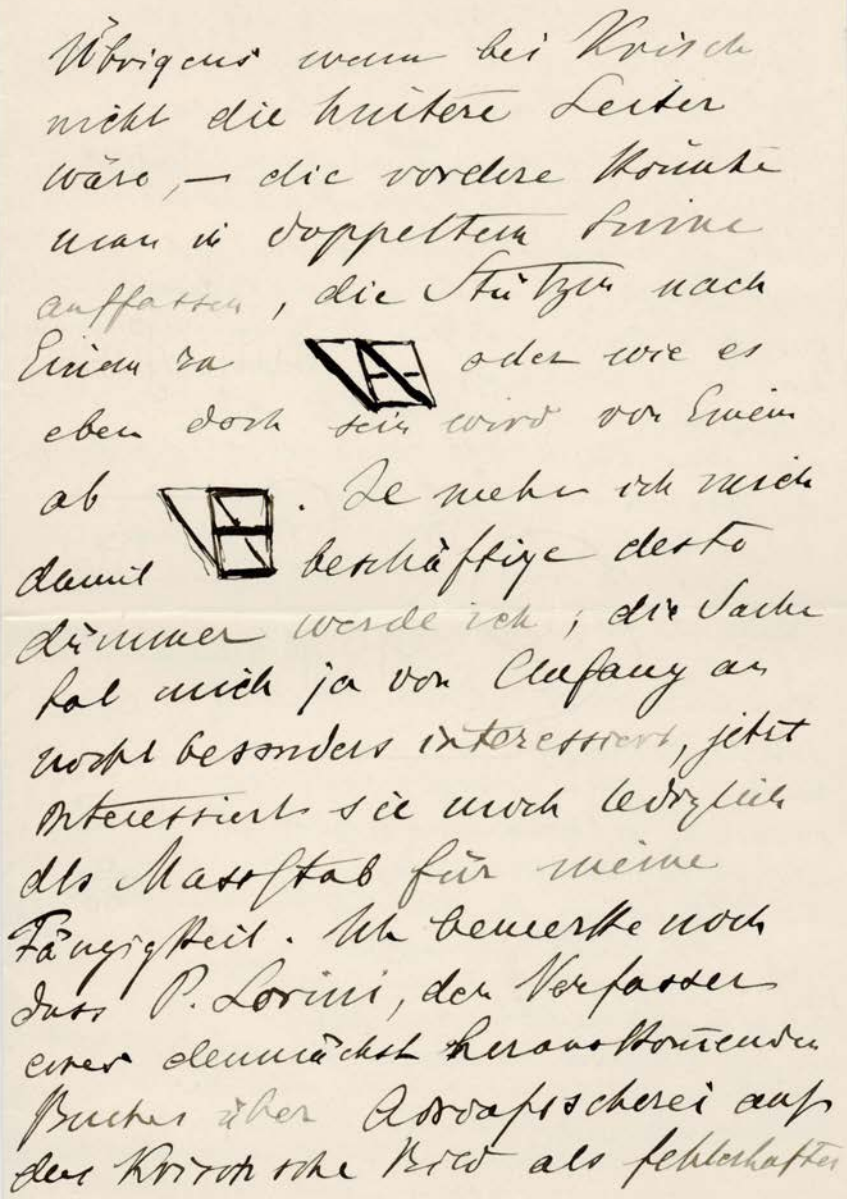 Übrigens wenn bei Krisch
nicht die hintere Leiter
wäre, — die vordere könnte
man in doppeltem Sinne
auffassen, die Stützen nach
Einem zu oder wie es
eben doch sein wird von Einem
ab . Je mehr ich mich
damit beschäftige desto
dümmer werde ich; die Sache
hat mich ja von Anfang an
nicht besonders interessiert, jetzt
interessiert sie mich lediglich
als Massstab für meine
Fähigkeit. Ich bemerke noch
dass P. Lorini, der Verfasser
eines demnächst herauskom̅enden
Buches über Adriafischerei auf
das Krisch'sche Bild als fehlerhaftes